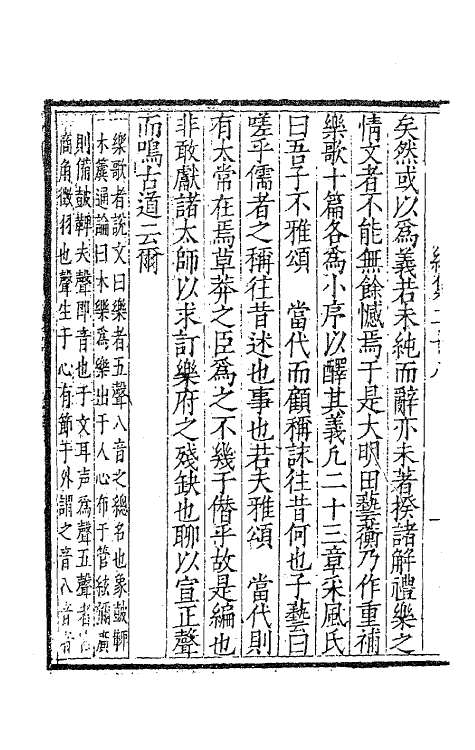 矣然或以為義若未純而辭亦未著揆諸解禮樂之
情文者不能無餘憾焉于是大明田藝蘅乃作重補
樂歌十篇各為小序以醳其義凡二十三章采風氏
曰吾子不雅頌　當代而顧稱誄往昔何也子藝曰
嗟乎儒者之稱往昔述也事也若夫雅頌　當代則
有太常在焉草莽之臣為之不幾于僭乎故是編也
非敢獻諸太師以求訂樂府之殘缺也聊以宣正聲
而鳴古道云爾
樂歌者說文曰樂者五聲八音之總名也象鼓鞞
木虡通論曰木樂為樂出于人心布于管絃彌廣
則備鼓鞞夫聲即音也于文耳声為聲五聲者宮
商角徵羽也聲生于心有節于外謂之音八音者